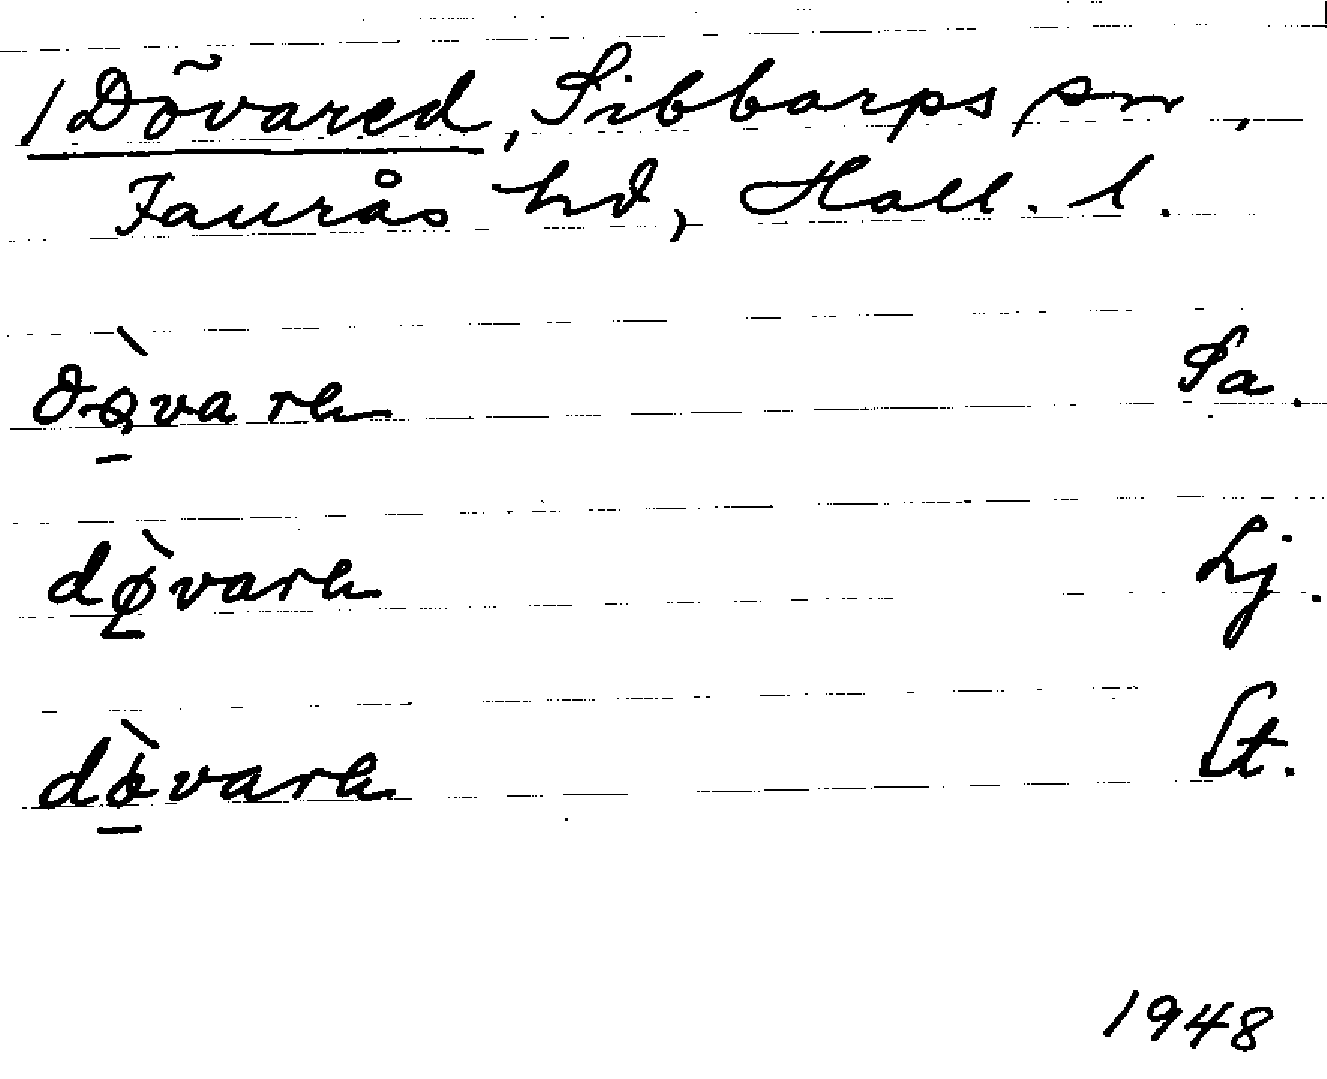 1 Dövared, Sibbarps sn,
Faurås hd, Hall. l.
dǫ̀vare Sa.
dø̀vare Lj.
dòvare Lt.
1948